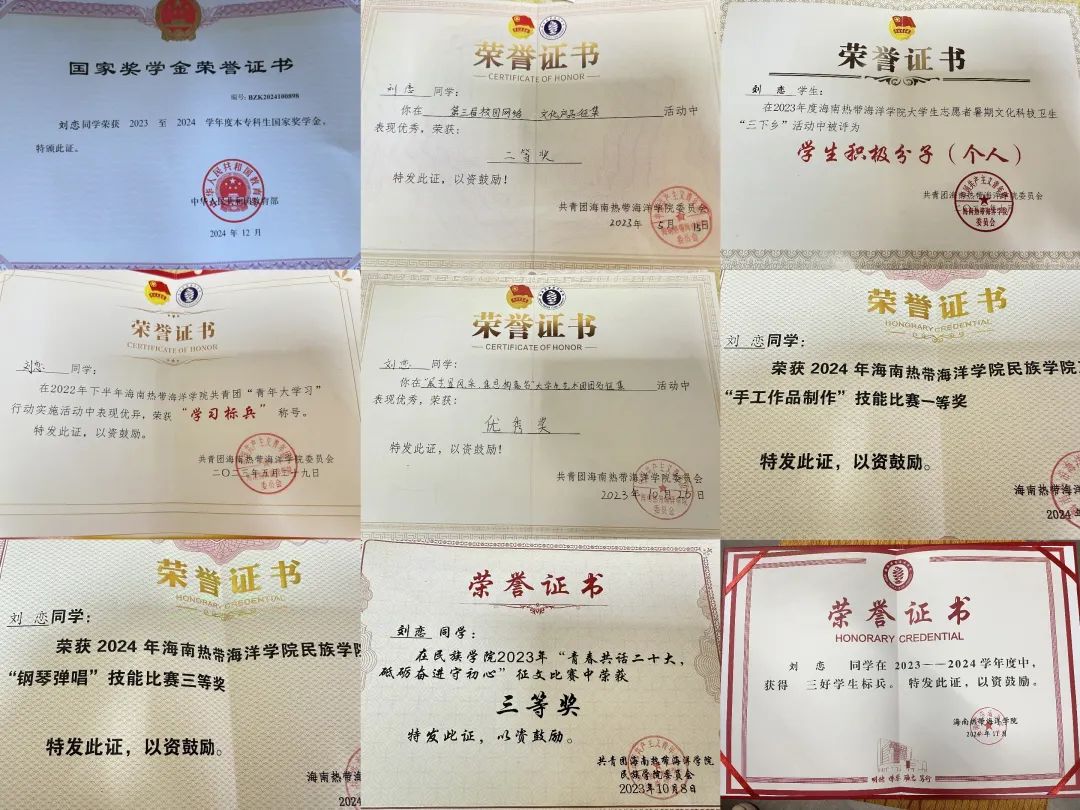 国家奖学金荣誉证书
编号: BZK2024100898
刘恋同学荣获 2023 至 2024 学年度本专科生国家奖学金。
特颁此证。
中华人民共和国教育部
2024 年 12 月
荣誉证书
CERTIFICATE OF HONOR
刘恋 同学:
你在 第三届校园网络 文化产品征集 活动中
表现优秀,荣获:
二等奖
特发此证,以资鼓励!
共青团海南热带海洋学院委员会
2023年 5月 15日
荣誉证书
刘 恋 学生:
在2023年度海南热带海洋学院大学生志愿者暑期文化科技卫生
“三下乡”活动中被评为
学生积极分子(个人)
共青团海南热带海洋学院委员会
荣誉证书
CERTIFICATE OF HONOR
刘恋 同学:
在2022年下半年海南热带海洋学院共青团“青年大学习”
行动实施活动中表现优异,荣获“学习标兵”称号。
特发此证,以资鼓励。
共青团海南热带海洋学院委员会
二〇二三年五月二十九日
荣誉证书
CERTIFICATE OF HONOR
刘恋 同学:
大学生艺术团团刊征集 活动中
表现优秀,荣获:
优秀奖
特发此证,以资鼓励!
共青团海南热带海洋学院委员会
2023年 10月 25日
荣誉证书
HONORARY CREDENTIAL
刘 恋同学:
荣获 2024 年海南热带海洋学院民族学院
“手工作品制作”技能比赛一等奖
特发此证,以资鼓励。
海南热带海洋
2024年
荣誉证书
HONORARY CREDENTIAL
刘 恋同学:
荣获 2024 年海南热带海洋学院民族学院
“钢琴弹唱”技能比赛三等奖
特发此证,以资鼓励。
海南热带
2024
荣誉证书
刘恋 同学:
在民族学院2023年“青春共话二十大,
砥砺奋进守初心”征文比赛中荣获
三等奖
特发此证,以资鼓励。
共青团海南热带海洋学院
民族学院委员会
2023年10月8日
荣誉证书
HONORARY CREDENTIAL
刘 恋 同学在 2023——2024 学年度中,
获得 三好学生标兵。特发此证,以资鼓励。
海南热带海洋学院
2024年11月